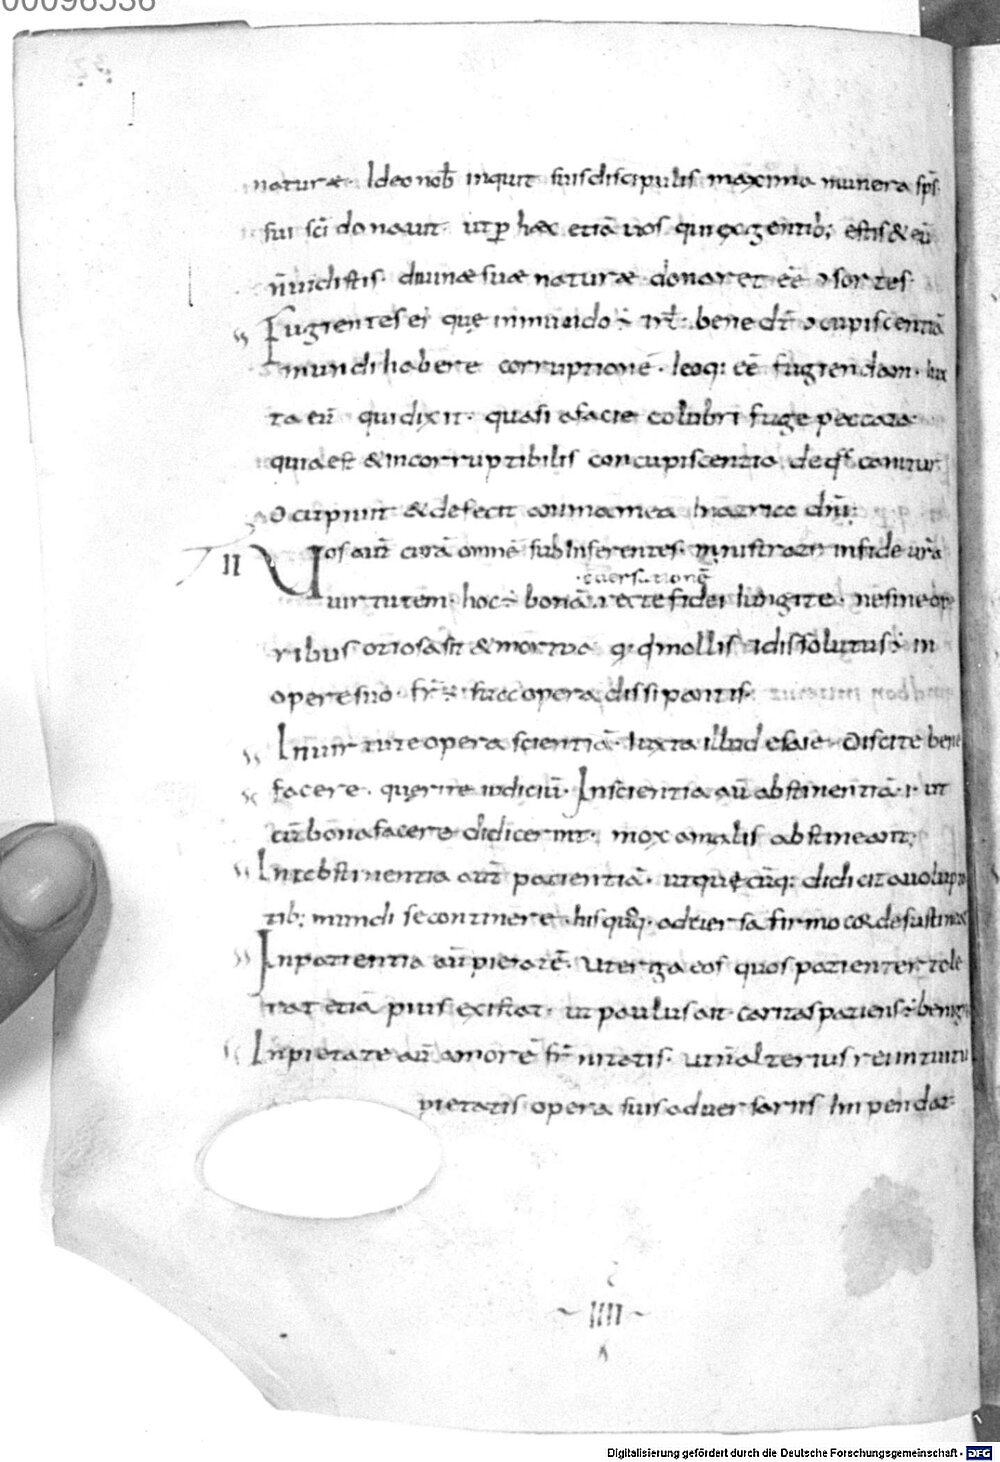 00096536
naturae. Ideo nob̄ inquit suis discipulis maxima munera sp̄s
sui sc̄i donauit. ut p̱ haec etiā uos qui ex gentib; estis & eū
n̄ uidistis. diuinae suae naturae donaret eē ɔsortes
Fugientes ei que in mundo ÷ bene dr̄ ɔcupiscentiā
mundi habere corruptionē. leoq: eē fugiendam. iux
ta eū qui dixit. quasi a facie colubri fuge peccata
quia est & incorruptibilis concupiscentia de canitur
ɔcupiuit & defecit anima mea in atrice dn̄i;
II Uos aut̄ curā omnē subinferentes. ministrate in fide ur̄a
ɔuersationē
uirtutem. hoc ÷ bonā rectę fidei iungite. ne sine op
ribus otiosa sit & mortua q; mollis & dissolutus ÷ in
opere suo. fr̄ ÷ sua opera dissipantis.
In uirtute opera scientiā. Iuxta illud esaie. Discite bene
facere. querite iudiciū. In scientia aū abstinentiā. ut
cū bona facere didicerint. mox a malis abstineant;
In abstinentia aut̄ patientiā. ut quęcūq; didicit a uolupta
tib; mundi se continere. his quoq; aduersa firmo corde sustineat
In patientia aū pietatē. ut erga eos quos patienter tole
rat etiā pius existat. ut paulus ait caritas patiens ÷ benig
In pietate aū amorē fr̄nitatis. ut n̄ alterius rei intuitu
pietatis opera suis aduersariis impendat
IIII
Digitalisierung gefördert durch die Deutsche Forschungsgemeinschaft - DFG